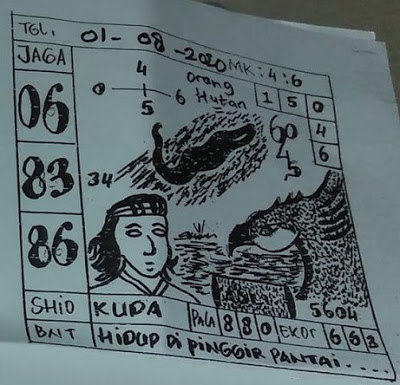 TGL, 01-08-2020 MK: 4:6
JAGA
06
83
86
4
0 6
5
Orang
Hutan
1 5 0
4
6
60
4
5
34
5604
SHIO KUDA PALA 8 8 0 EKOR 6 5 3
BNT HIDUP DI PINGGIR PANTAI....